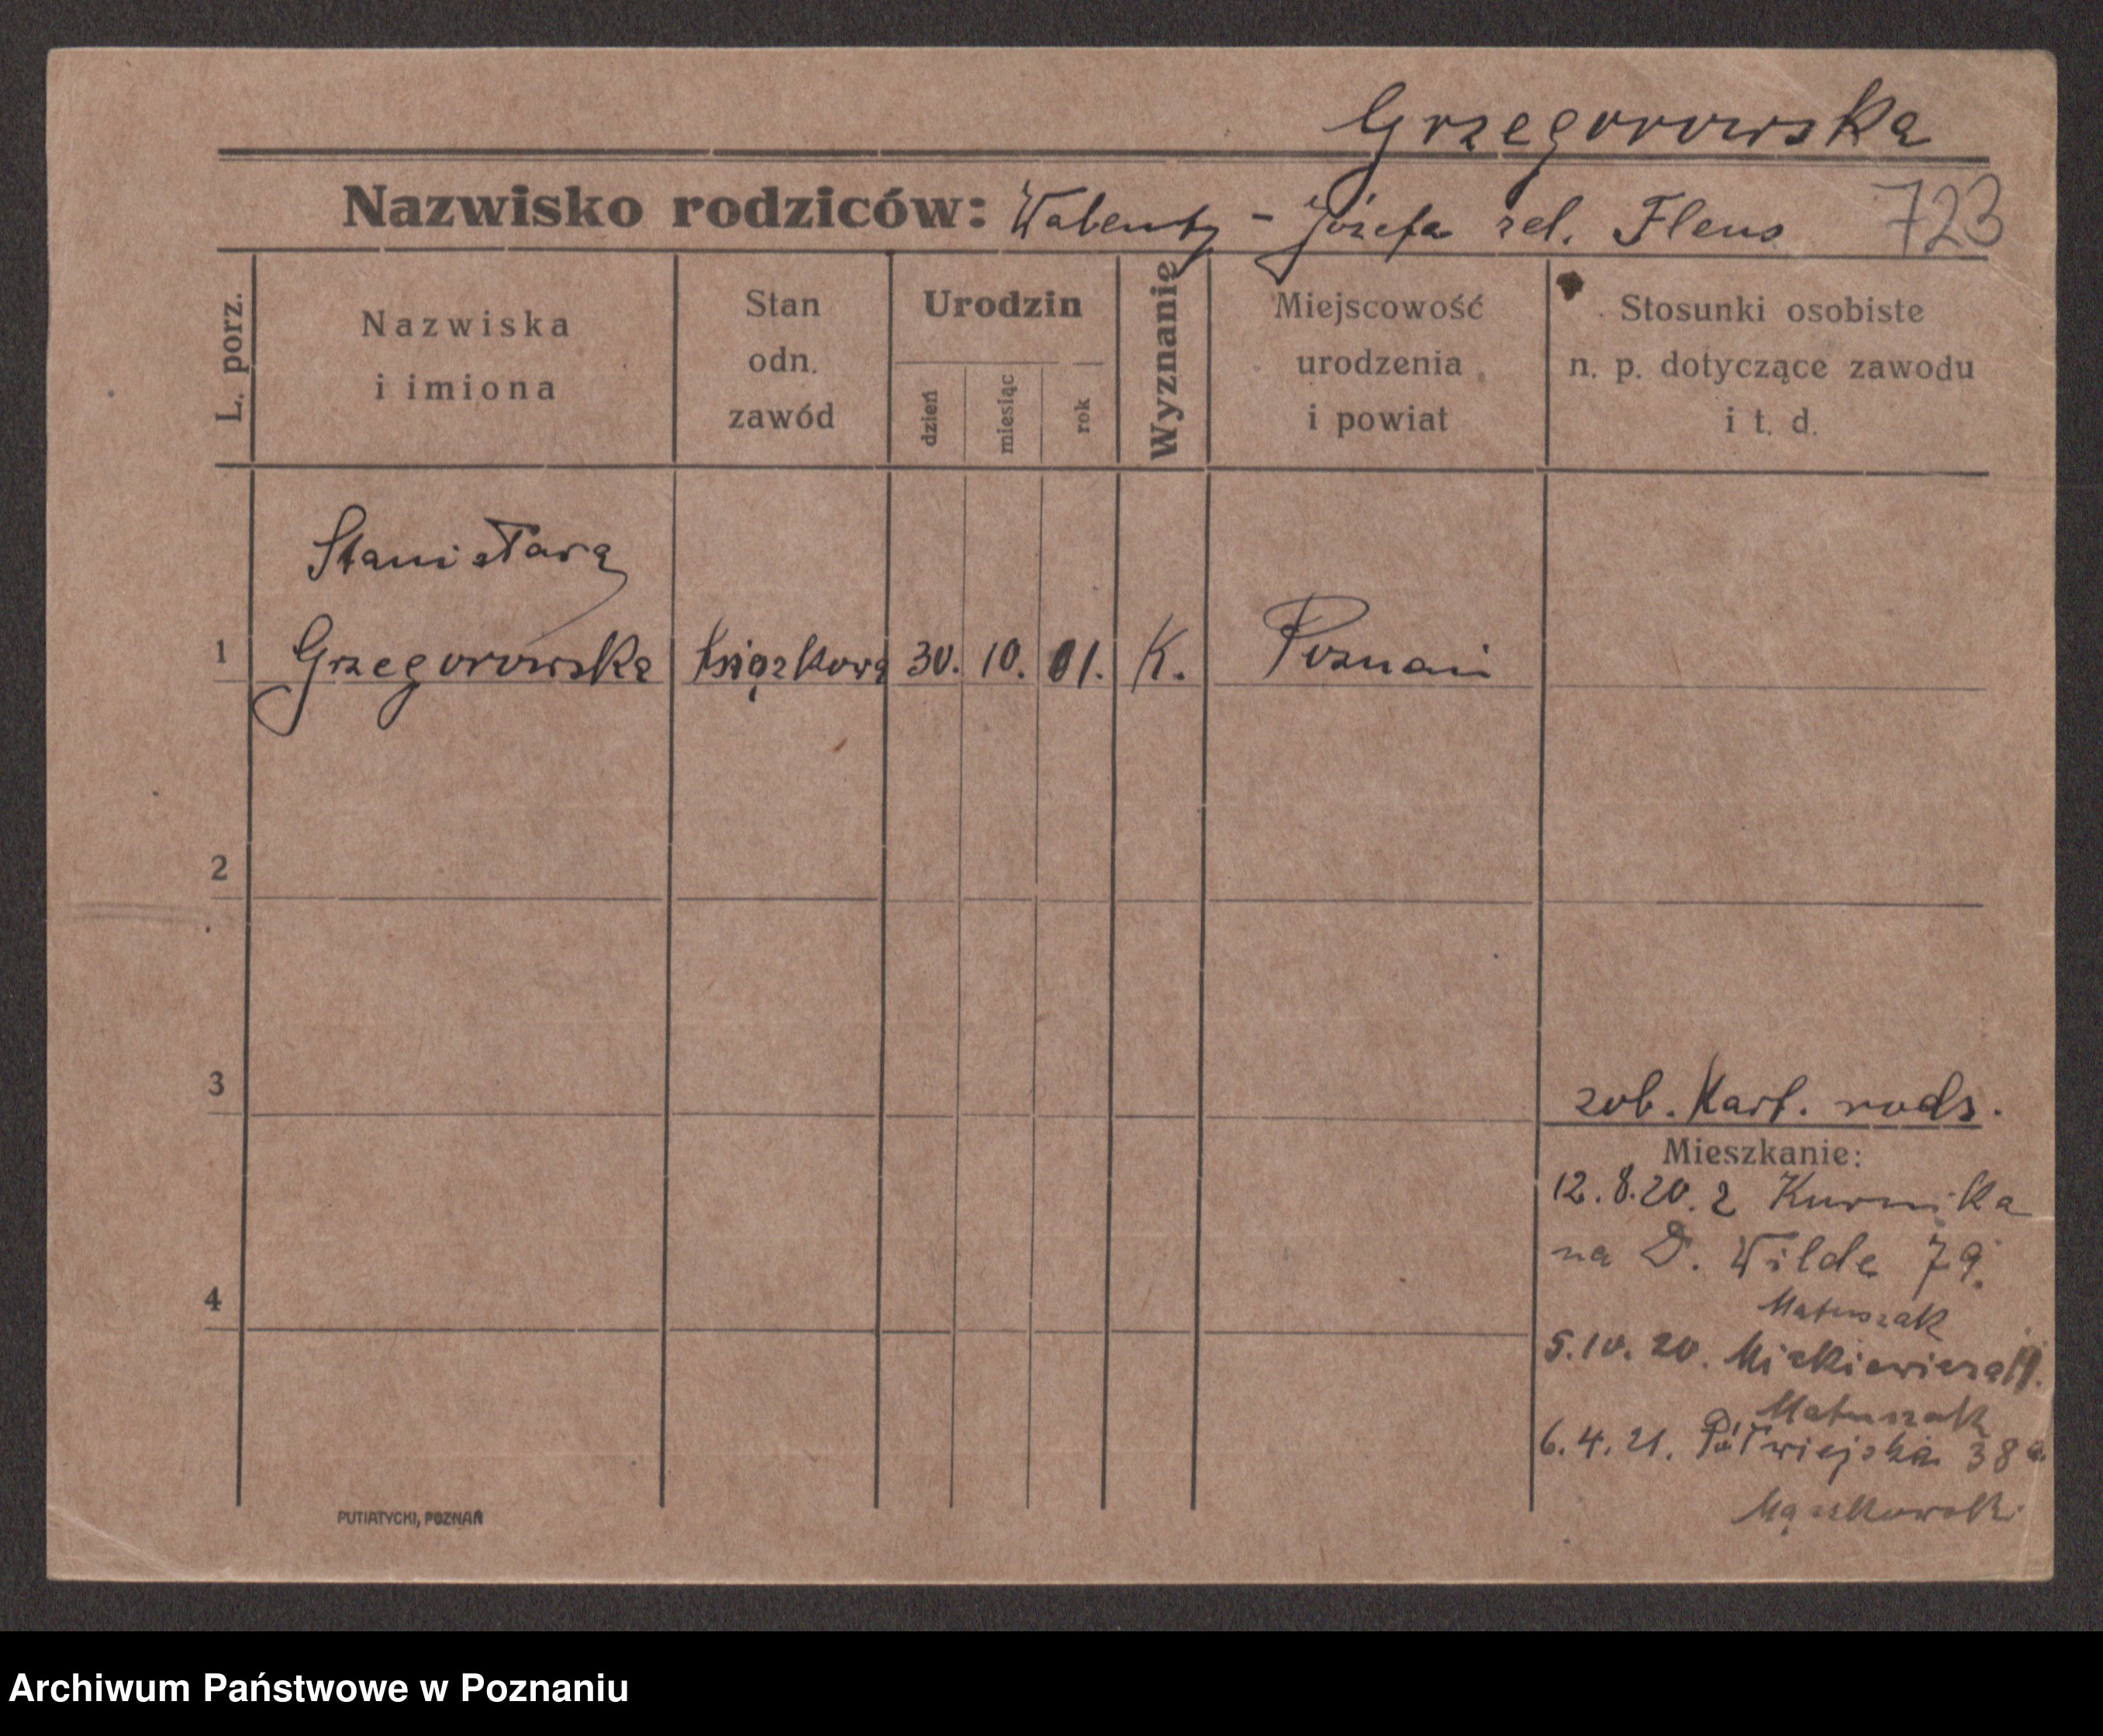 Grzegorowska
Nazwisko rodziców: Walenty - Józefa zd. Flens 723
L. porz.
Nazwiska
i imiona
Stan
odn.
zawód
Urodzin
dzień
miesiąc
rok
Wyznanie
Miejscowość
urodzenia
i powiat
Stosunki osobiste
n. p. dotyczące zawodu
i t. d.
Stanisława
1 Grzegorowska książkowa 30. 10. 01. K. Poznań
2
3
zob. Kart. rodz.
Mieszkanie:
12.8.20. z Kurnika
na D. Wilde 79.
Matuszak
4
5.10.20. Mickiewicza
Matuszak
6.4.21. Półwiejska 38a
Mąszkowski
PUTIATYCKI, POZNAŃ
Archiwum Państwowe w Poznaniu